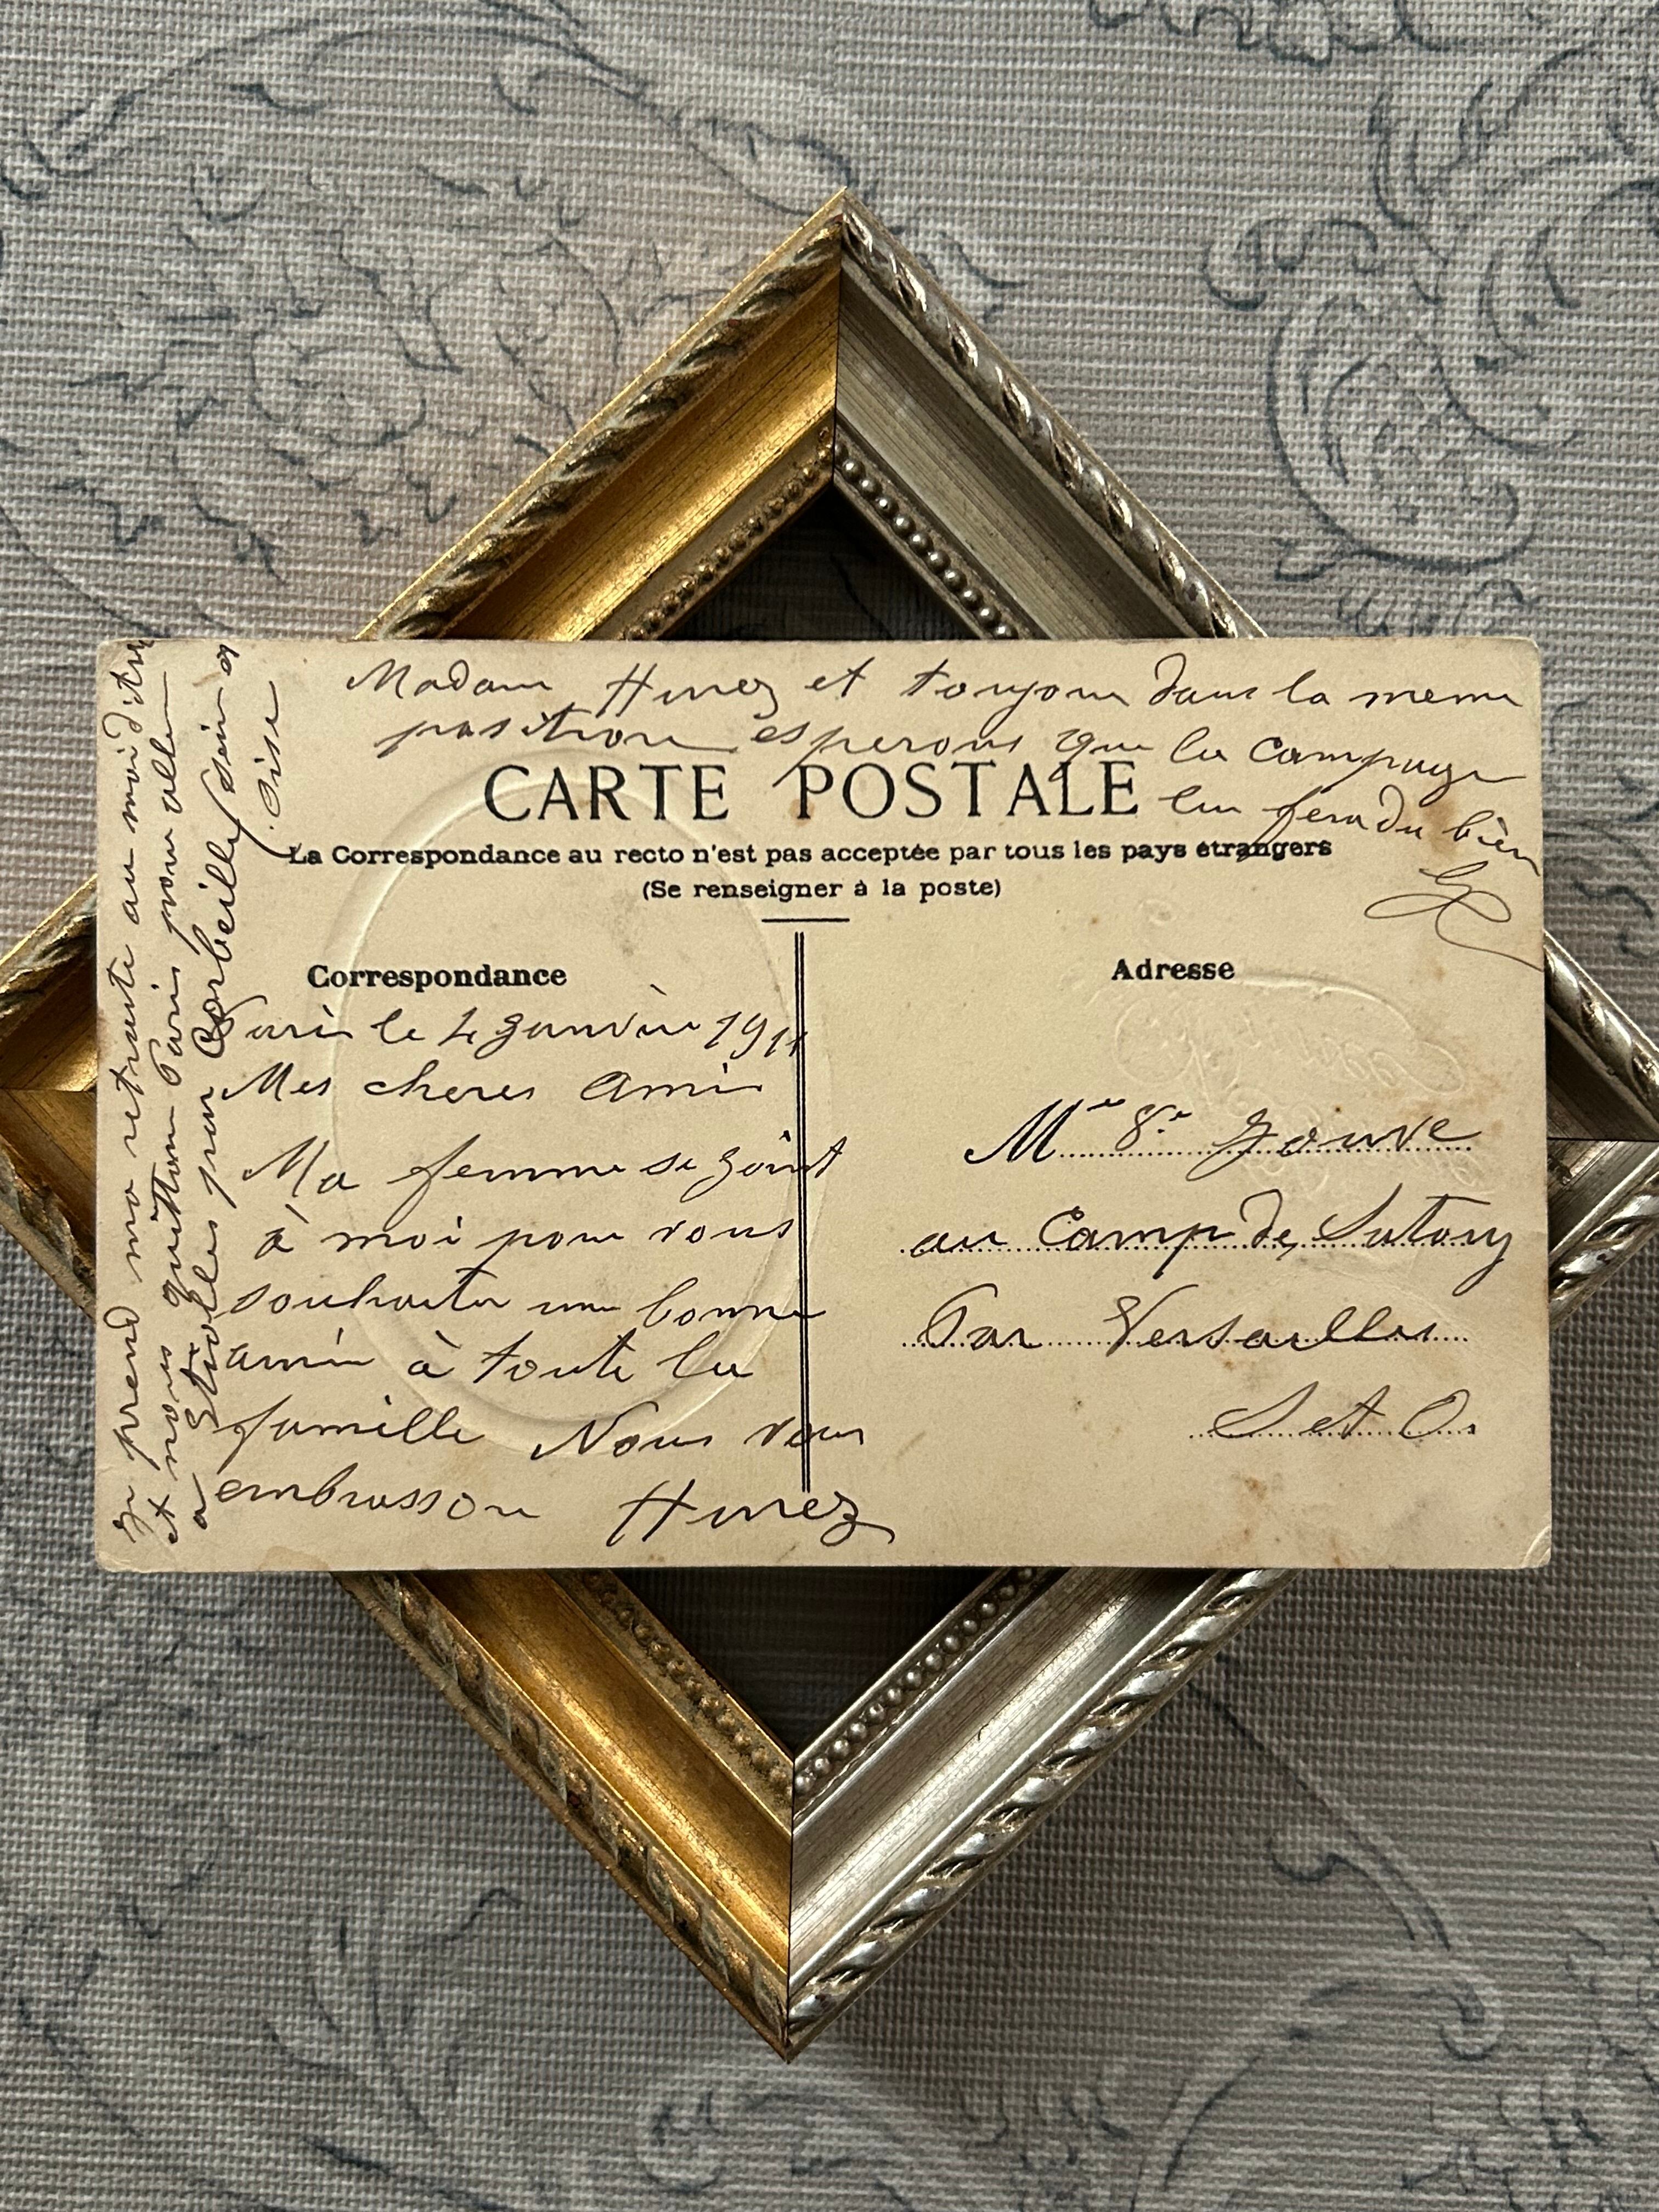 Madam Hurez et toujour dans la meme
position esperons que la Campage
lui fera du bien
CARTE POSTALE
La Correspondance au recto n'est pas acceptée par tous les pays étrangers
(Se renseigner à la poste)
Correspondance
Paris le 4 Janvier 1911
Mes cheres Ami
Ma femme se joint
à moi pour vous
souhaiter une bonne
année à toute la
famille Nous vous
embrasson Hurez
Je prend ma retraite au moi d'
et nous quittons Paris pour aller
a Etiolles par Corbeille Sein et
Oise
Adresse
Mme Vve Jouve
au Camp de Satory
Par Versailles
S et O.